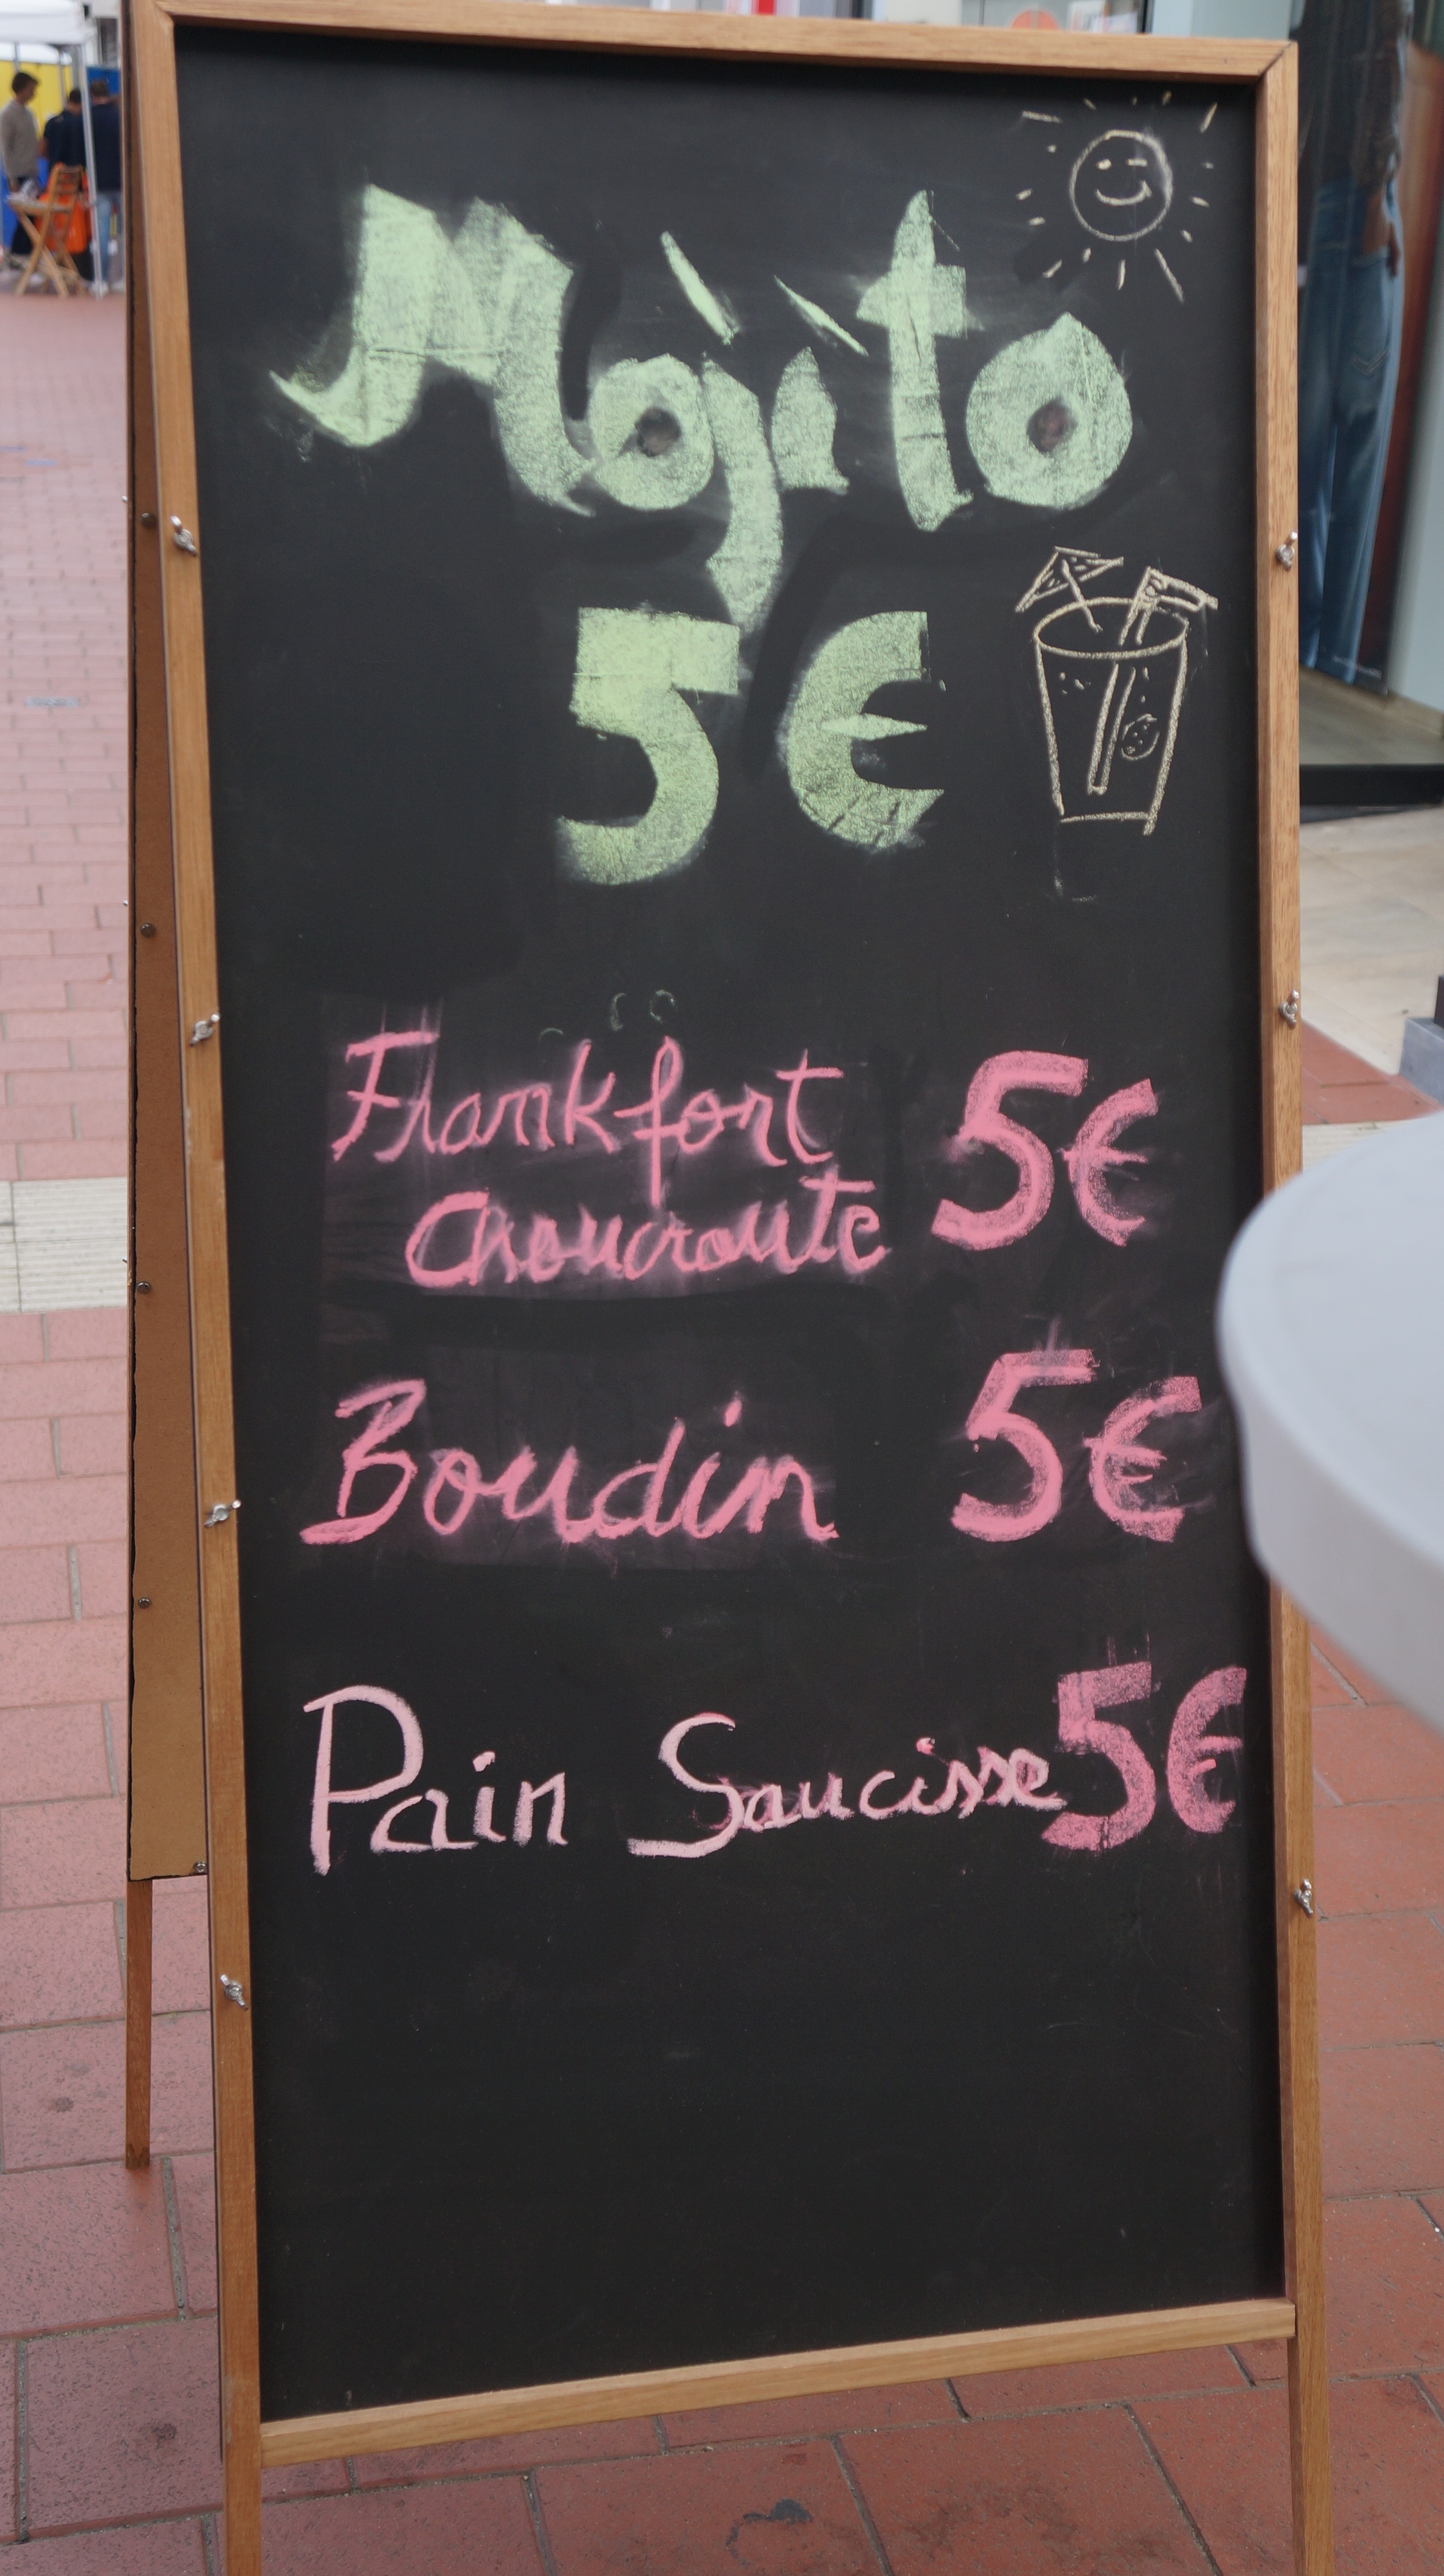 Mojito
5€
Frankfort 5€
Choucroute
Boudin 5€
Pain Saucisse 5€